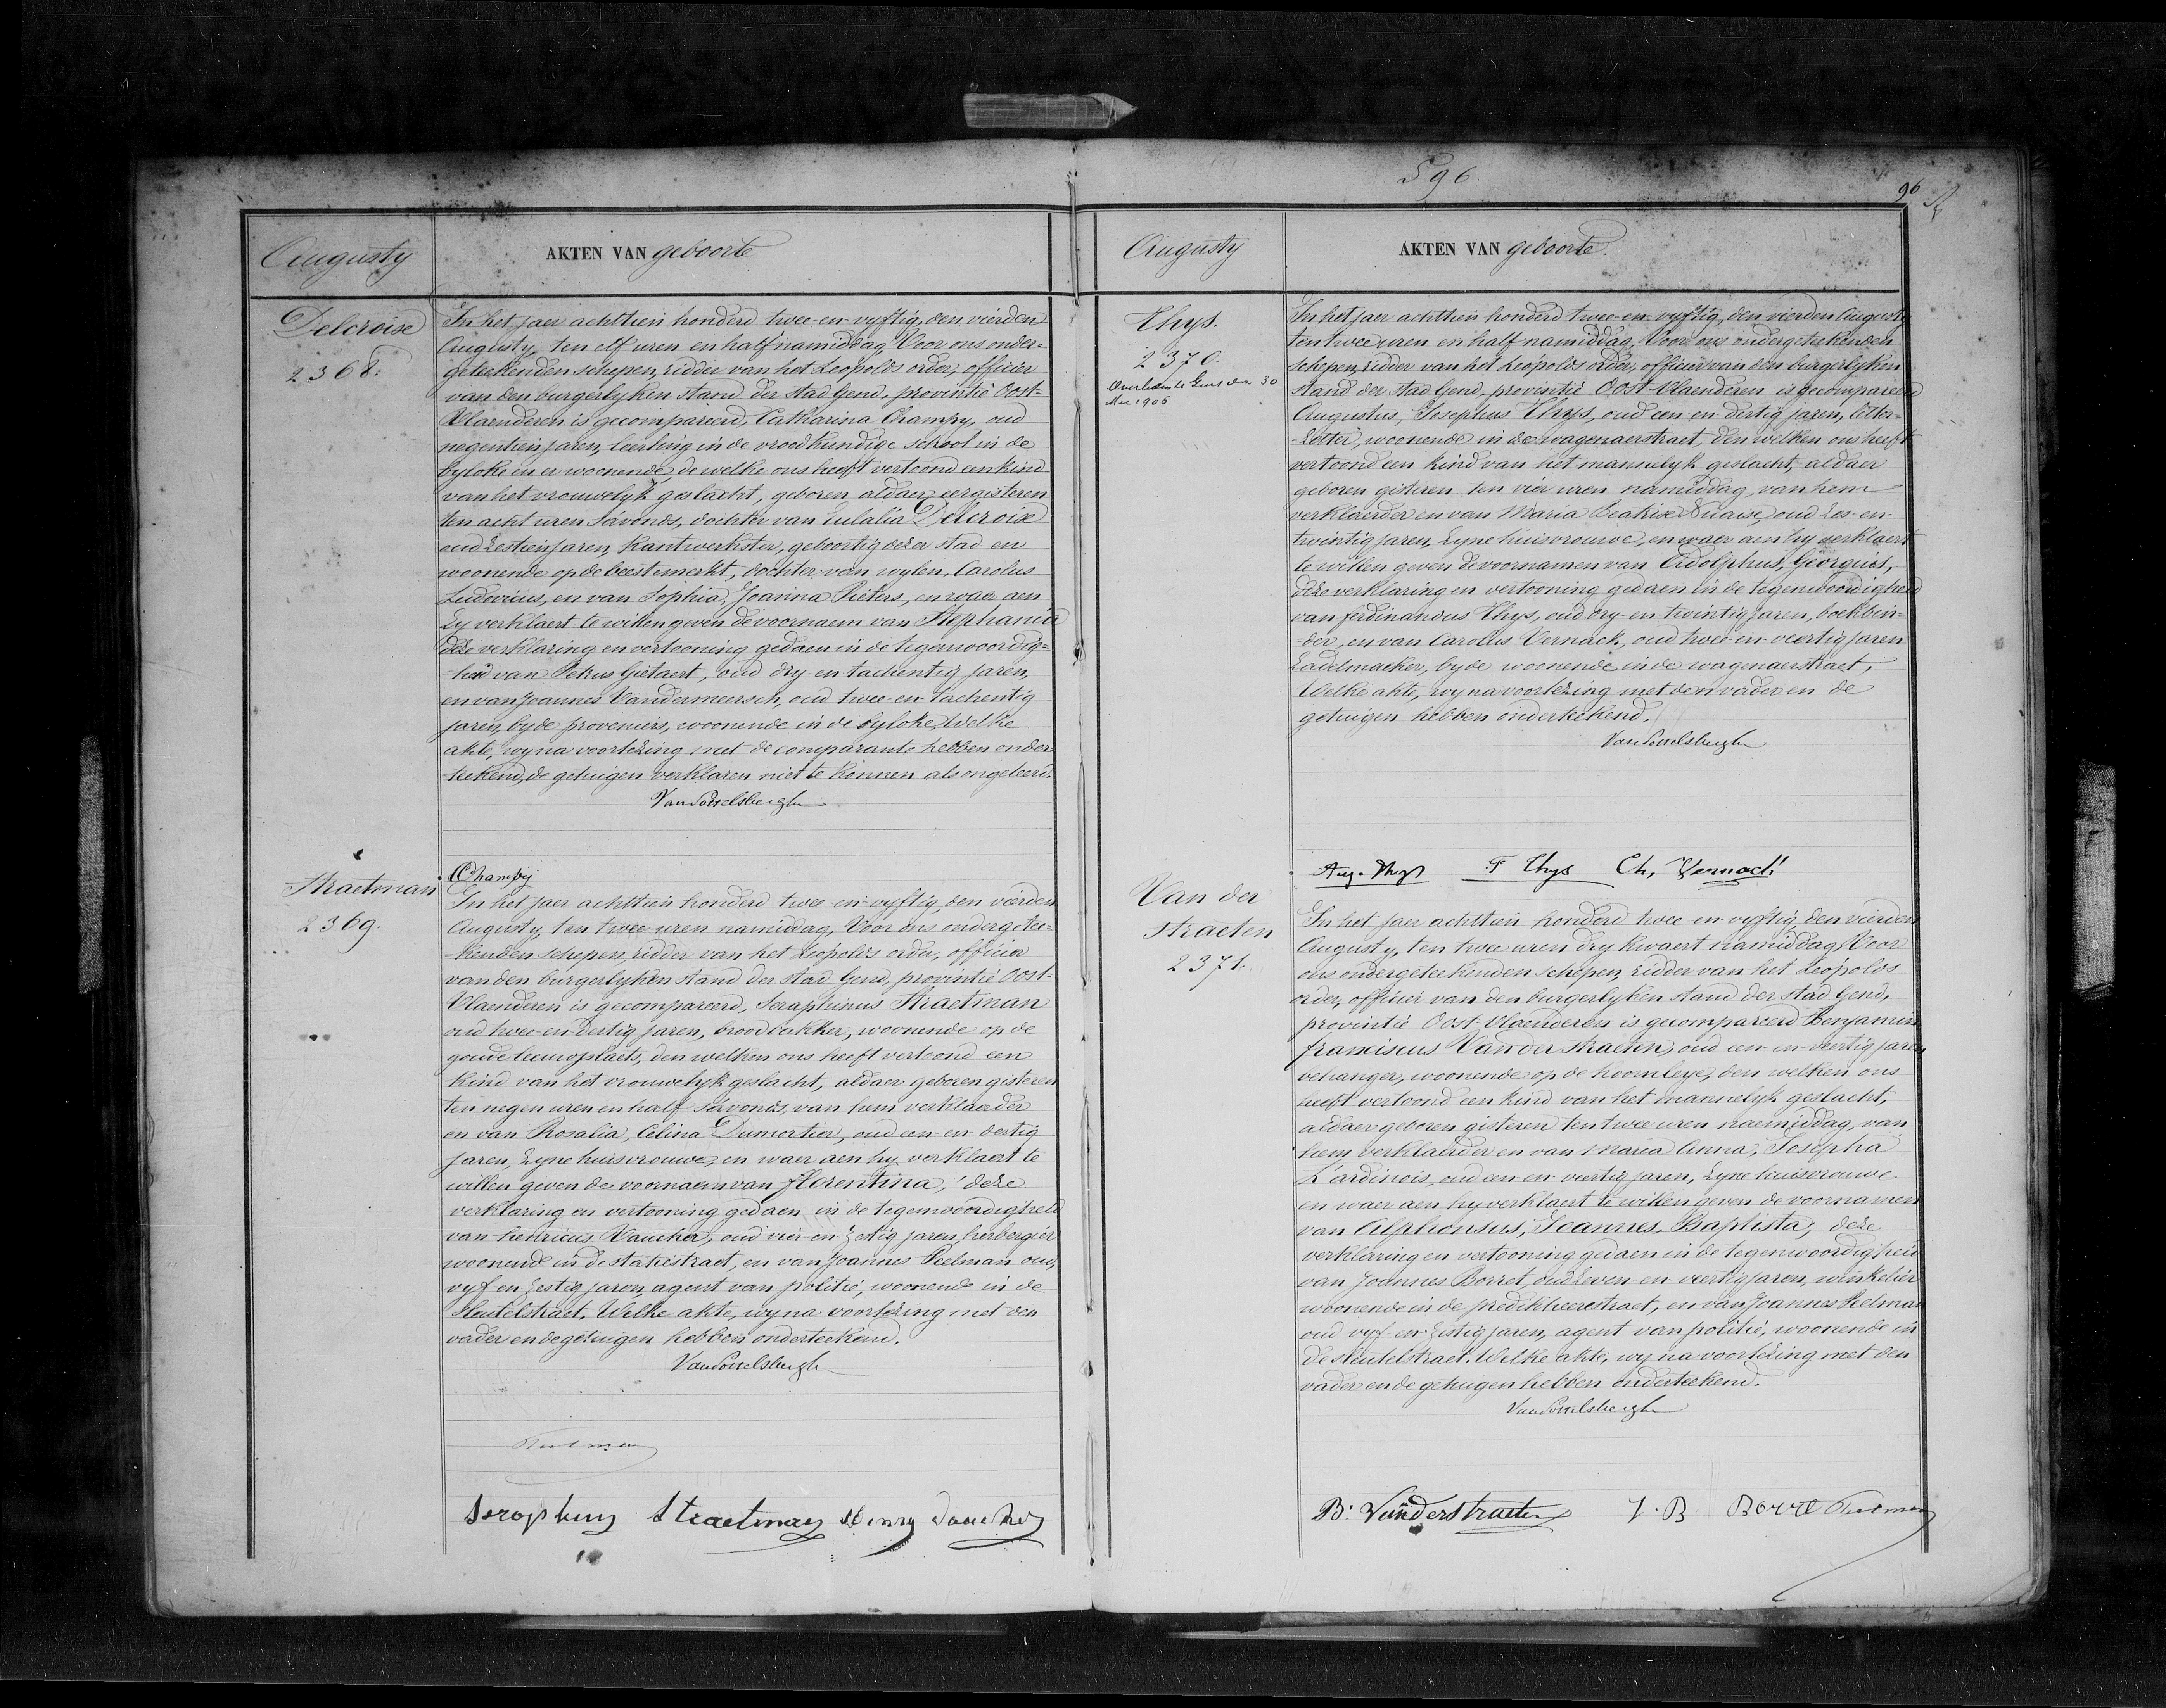 596
96
Augusty
AKTEN VAN geboorte
Delcroise
2368.
In het jaer achttien honderd twee-en-vyftig, den vierden
Augusty, ten elf uren en half namiddag, Voor ons onder-
geteekenden schepen, ridder van het Leopolds order, officier
van den burgerlyken stand der stad Gend, provintie Oost-
Vlaenderen is gecompareerd, Catharina Champy, oud
negentien jaren, leerling in de vroedkundige school in de
byloke en er woonende, de welke ons heeft vertoond een kind
van het vrouwelyk geslacht, geboren aldaer, eergisteren
ten acht uren s'avonds, dochter van Eulalia Delcroise
oud zestien jaren, kantwerkster, geboortig dezer stad en
woonende op de beestemarkt, dochter van wylen, Carolus
Ludovicus, en van Sophia, Joanna Pieters, en waer aen
zy verklaert te willen geven de voornaem van Stephania
deze verklaring en vertooning gedaen in de tegenwoordig-
-heid van Petrus Gietaert, oud dry-en-tachentig jaren,
en van Joannes Vandermeersch, oud twee-en-tachentig
jaren, byde proveniers, woonende in de byloke, Welke
akte, wy na voorlezing met de comparante hebben onder-
-teekend, de getuigen verklaren niet te konnen als ongeleerd.
VanPottelsberghe
Champy
Straetman
2369.
In het jaer achttien honderd twee en vyftig, den vierden
Augusty, ten twee uren namiddag, Voor ons ondergetee-
-kenden schepen, ridder van het Leopolds order, officier
van den burgerlyken stand der stad Gend, provintie Oost-
Vlaenderen is gecompareerd, Seraphinus Straetman
oud twee-en-dertig jaren, broodbakker, woonende op de
goude leeuwplaets, den welken ons heeft vertoond een
kind van het vrouwelyk geslacht, aldaer geboren gisteren
ten negen uren en half s'avonds, van hem verklaerder
en van Rosalia, Celina Dumortier, oud een-en-dertig
jaren, zyne huisvrouwe, en waer aen hy verklaert te
willen geven de voornaem van florentina, deze
verklaring en vertooning gedaen in de tegenwoordigheid
van henricus Vaucher, oud vier-en-zestig jaren, herbergier
woonende in de statiestraet, en van Joannes Peelman oud
vyf-en-zestig jaren, agent van politie, woonende in de
Sleutelstraet. Welke akte, wy na voorlezing met den
vader en de getuigen hebben onderteekend.
VanPottelsberghe
Peelman
Seraphinus Straetman Henry Vaucher
Augusty
AKTEN VAN geboorte.
Thys.
2370.
Overleden te Gent den 30
Mei 1906
In het jaer achttien honderd twee-en-vyftig, den vierden Augusty
ten twee uren en half namiddag, Voor ons ondergeteekenden
schepen, ridder van het Leopolds order, officier van den burgerlyken
stand der stad Gend, provintie Oost-Vlaenderen is gecompareerd
Augustus, Josephus Thys, oud een-en-dertig jaren, letter-
-zetter, woonende in de wagenaerstraet, den welken ons heeft
vertoond een kind van het mannelyk geslacht, aldaer
geboren gisteren ten vier uren namiddag, van hem
verklaerder en van Maria Beatrix Nuaise, oud zes-en-
twintig jaren, zyne huisvrouwe, en waer aen hy verklaert
te willen geven de voornamen van Adolphus, Georgius,
deze verklaring en vertooning gedaen in de tegenwoordigheid
van ferdinandus Thys, oud dry-en-twintig jaren, boekbin-
-der, en van Carolus Vernack, oud twee-en-veertig jaren
zadelmaeker, byde woonende in de wagenaerstraet,
Welke akte, wy na voorlezing met den vader en de
getuigen hebben onderteekend.
VanPottelsberghe
Aug. Thys F Thys Ch, Vernack
Van der
straeten
2371.
In het jaer achttien honderd twee-en-vyftig, den vierden
Augusty, ten twee uren dry kwaert namiddag, Voor
ons ondergeteekenden schepen, ridder van het Leopolds
order, officier van den burgerlyken stand der stad Gend,
provintie Oost-Vlaenderen is gecompareerd Benjamin
franciscus Van der straeten, oud een-en-veertig jaren
behanger, woonende op de koornleye, den welken ons
heeft vertoond een kind van het mannelyk geslacht,
aldaer geboren gisteren ten twee uren naemiddag, van
hem verklaerder en van Maria Anna, Josepha
L'ardinois, oud een-en-veertig jaren, zyne huisvrouwe
en waer aen hy verklaert te willen geven de voornamen
van Alphonsus, Joannes, Baptista, deze
verklaring en vertooning gedaen in de tegenwoordigheid
van Joannes Borret, oud zeven-en-veertig jaren, winkelier
woonende in de predikheerestraet, en van Joannes Peelman
oud vyf-en-zestig jaren, agent van politie, woonende in
de sleutelstraet. Welke akte, wy na voorlezing met den
vader en de getuigen hebben onderteekend.
VanPottelsberghe
B. Vanderstraeten J. B Borre Peelman